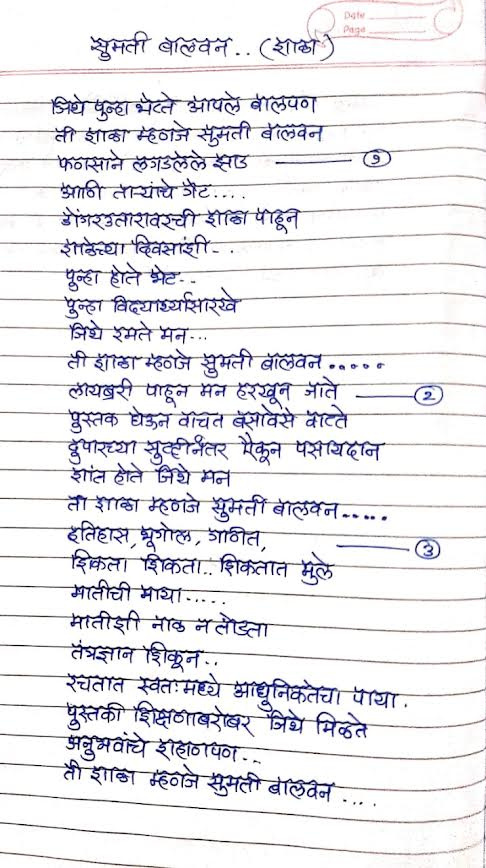 Date
Page
सुमती बालवन.. (शाळा)
जिथे पुन्हा भेटते आपले बालपण
ती शाळा म्हणजे सुमती बालवन
फणसाने लगडलेले झाड ——— १
आणि ताऱ्यांचे गेट....
डोंगरउतारावरची शाळा पाहून
शाळेच्या दिवसांशी..
पुन्हा होते भेट..
पुन्हा विद्यार्थ्यासारखे
जिथे रमते मन...
ती शाळा म्हणजे सुमती बालवन.....
लायब्ररी पाहून मन हरखून जाते ——— 2
पुस्तक घेऊन वाचत बसावेसे वाटते
दुपारच्या सुट्टीनंतर ऐकून पसायदान
शांत होते जिथे मन
ती शाळा म्हणजे सुमती बालवन.....
इतिहास, भूगोल, गणित, ——— 3
शिकता शिकता.. शिकतात मुले
मातीची माया.....
मातीशी नाळ न तोडता
तंत्रज्ञान शिकून..
रचतात स्वतःमध्ये आधुनिकतेचा पाया.
पुस्तकी शिक्षणाबरोबर जिथे मिळते
अनुभवांचे शहाणपण...
ती शाळा म्हणजे सुमती बालवन....